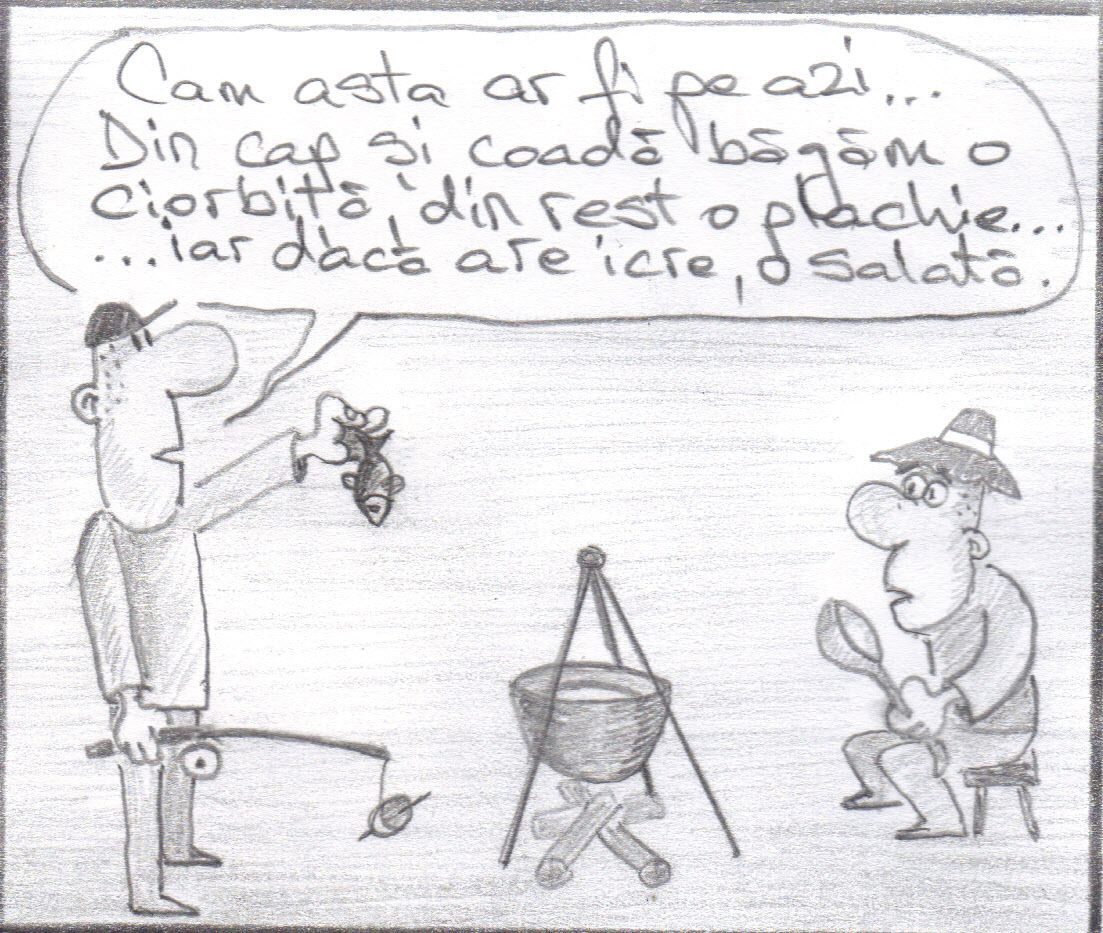 Cam asta ar fi pe azi...
Din cap și coadă băgăm o
ciorbiță, din rest o plachie...
...iar dacă are icre, o salată.